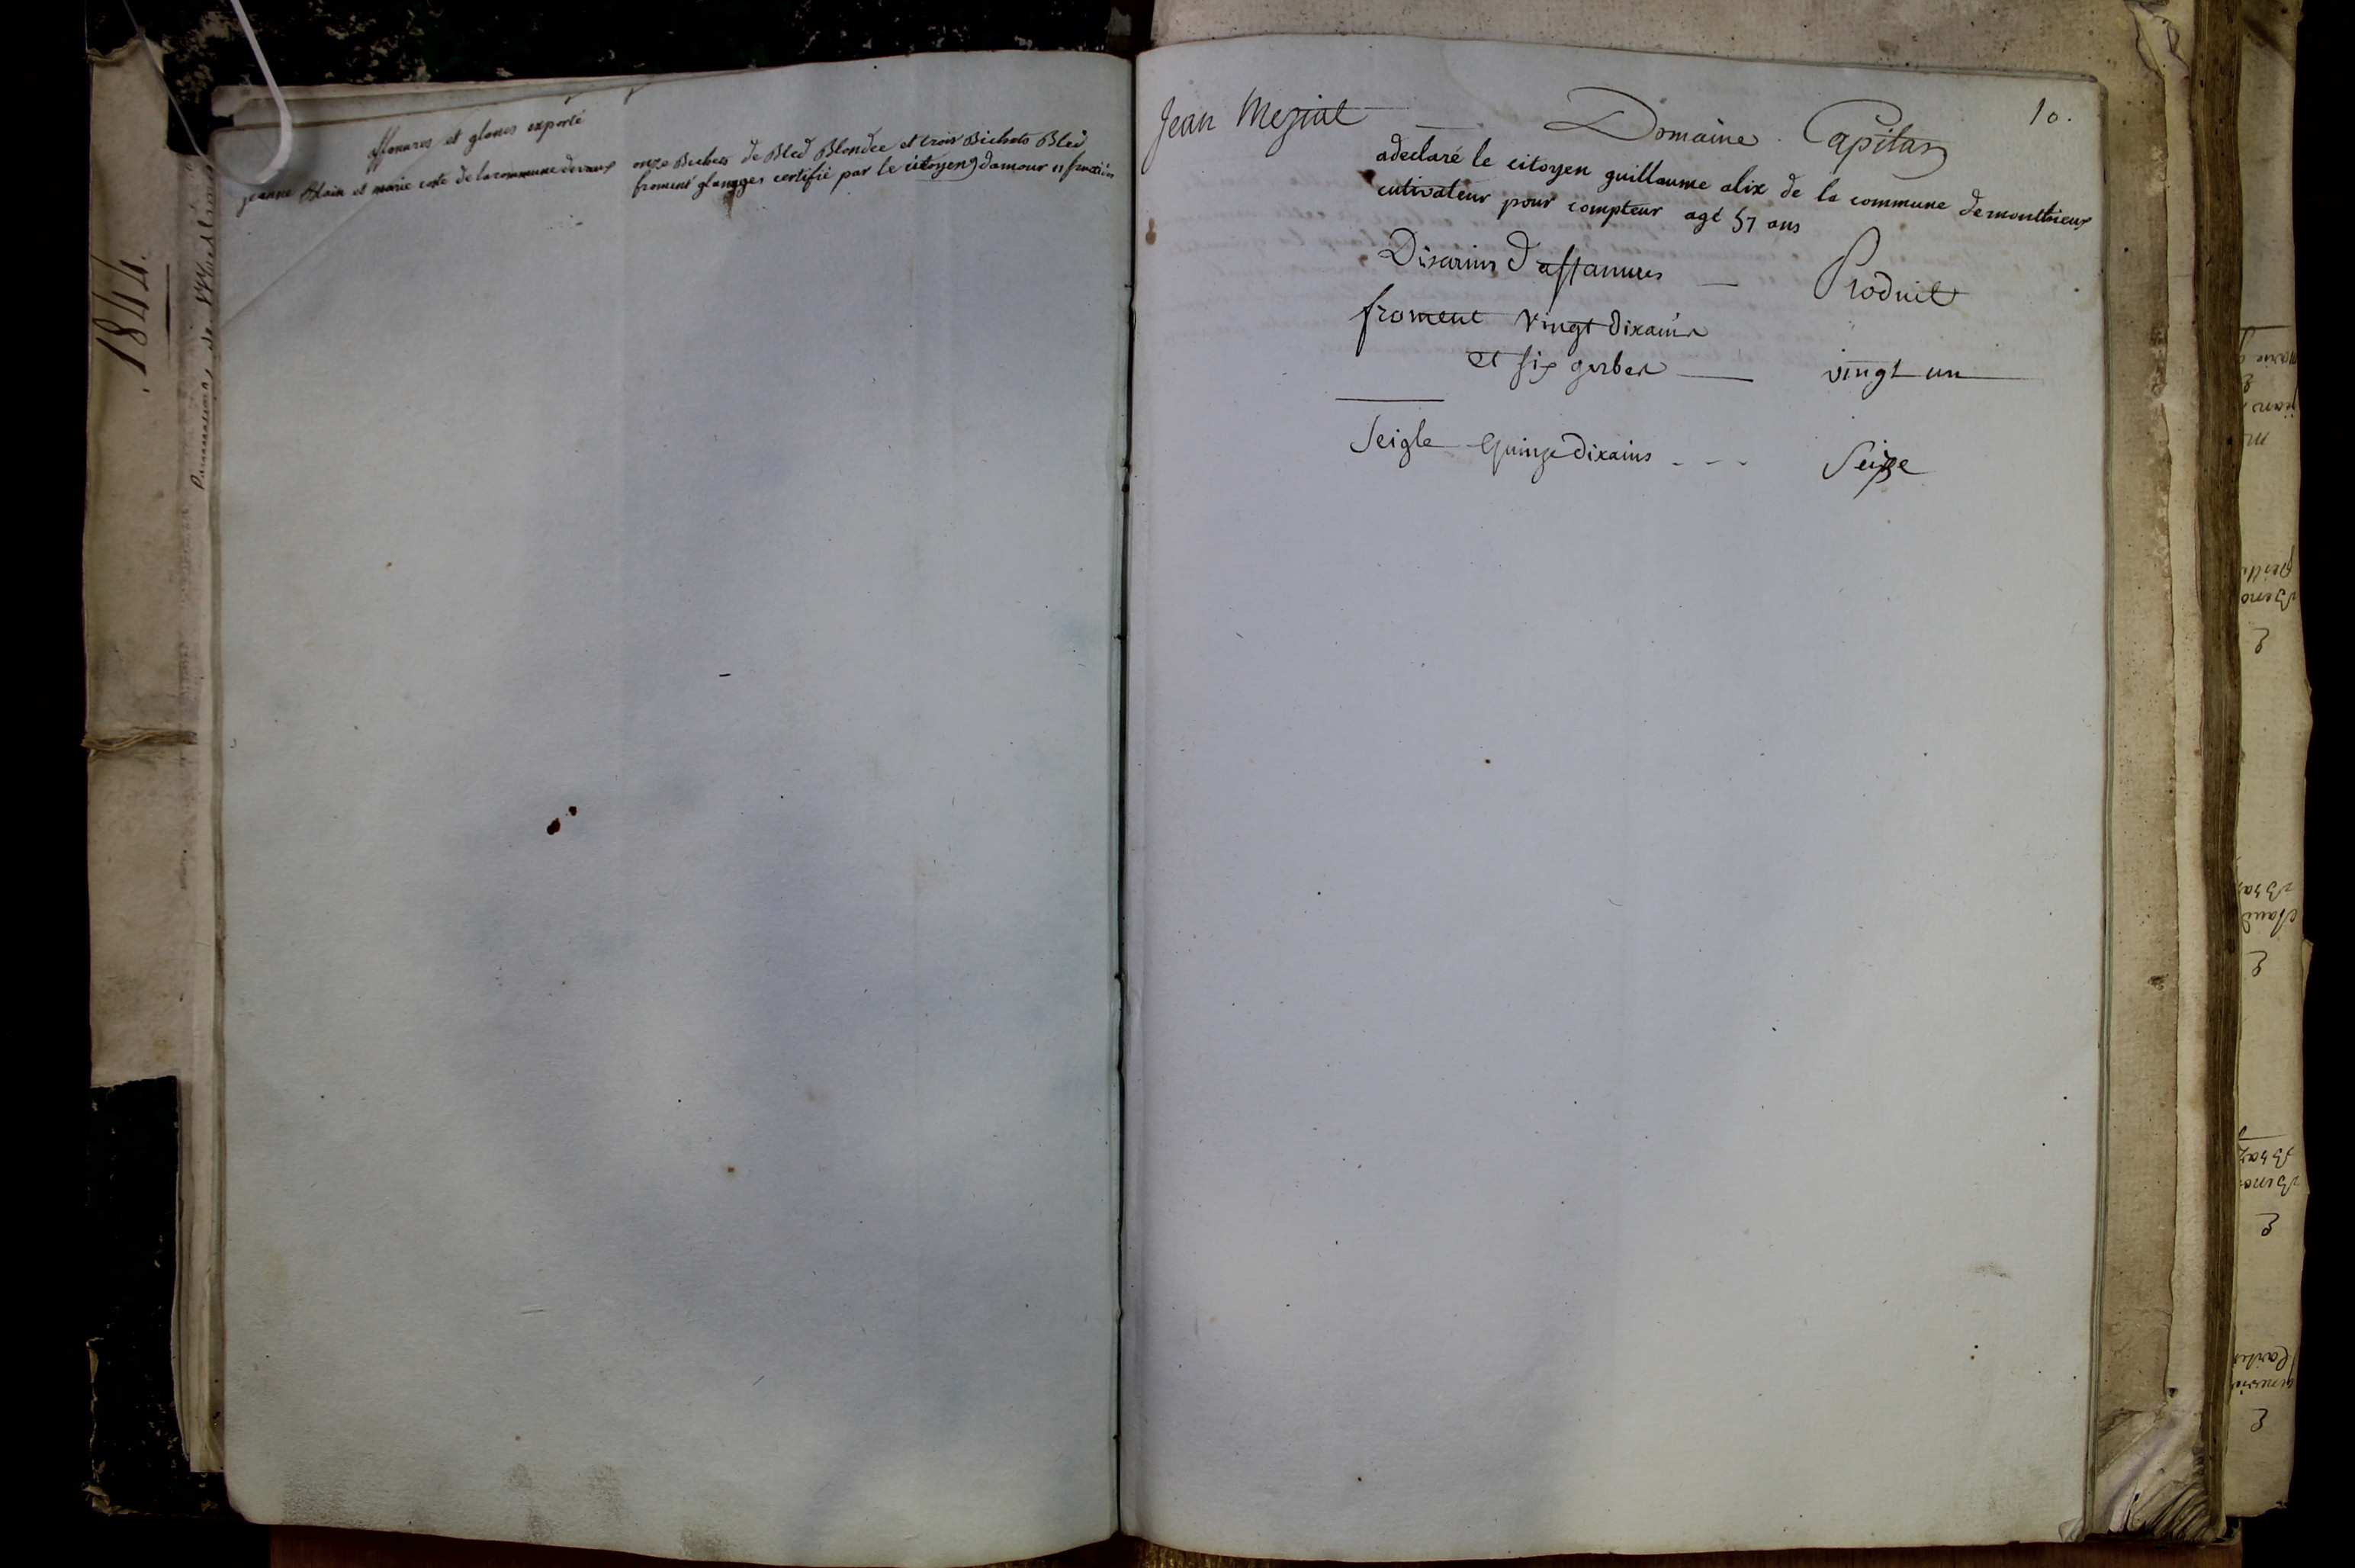 affanures et glanes exporté
jeanne Blain et marie coste de la commune devaux
onze Bichets de Bled Blondée et trois Bichets Bled
froment glanages certifié par le citoyen damour 11
1844.
Jean Mezial
10.
Domaine Capitan
adeclaré le citoyen guillaume alix de la commune demonthieux
cutivateur pour compteur agé 57 ans
Dixains d'affanures
Produit
froment vingt dixains
et six gerbes
vingt un
Seigle Quinze dixains
Seize